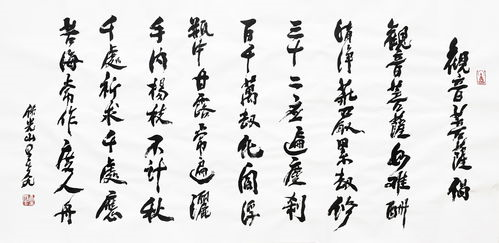 觀音菩薩偈
觀音菩薩妙難酬
清淨莊嚴累劫修
三十二應遍塵剎
百千萬劫化閻浮
瓶中甘露常遍灑
手內楊枝不計秋
千處祈求千處應
苦海常作度人舟
佛光山星雲